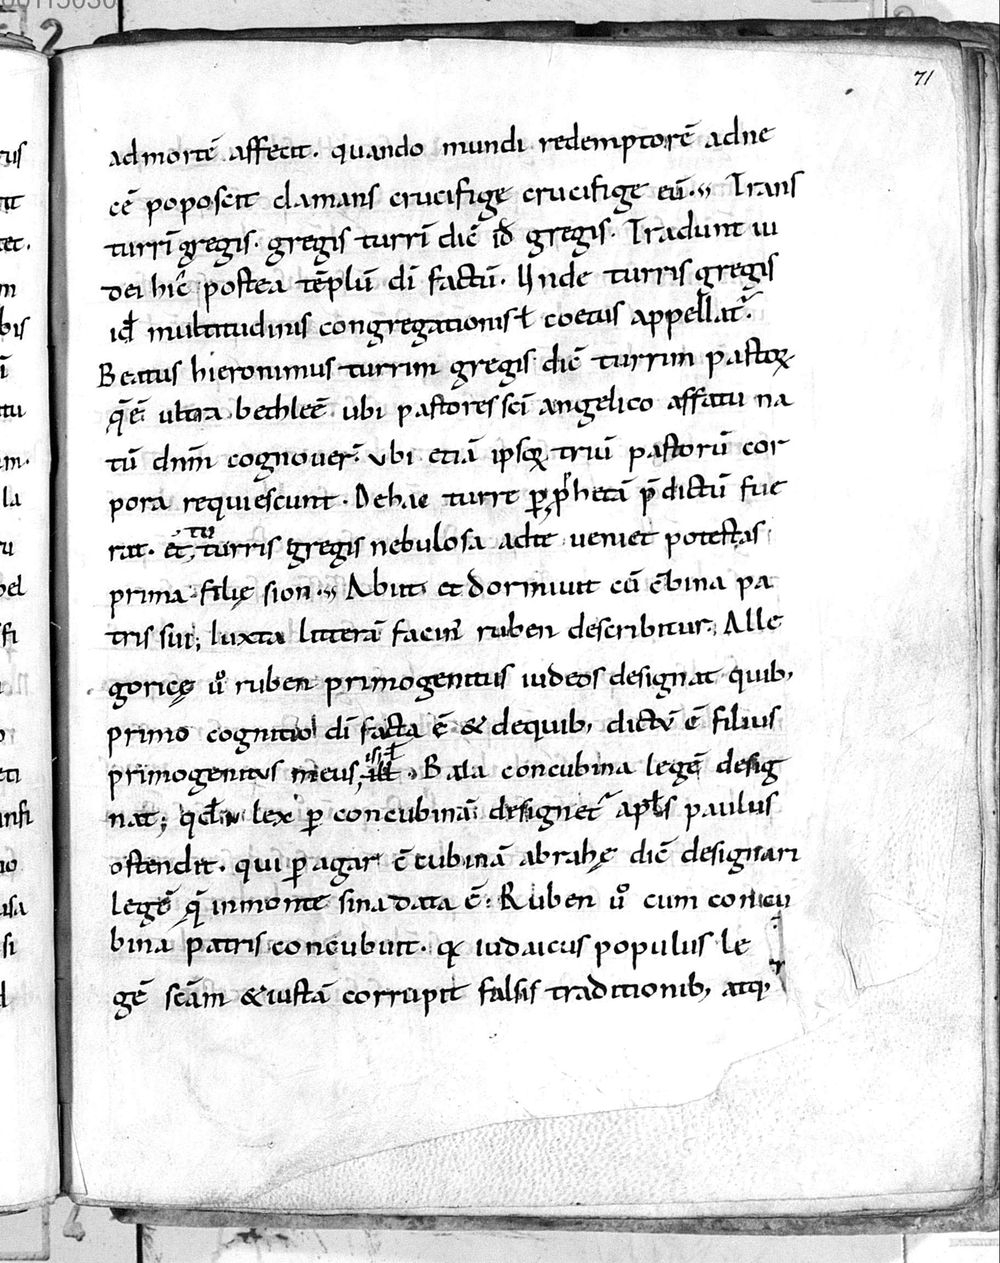 71
admortē affecit. quando mundi redemptorē adne
cē poposcit clamans crucifige crucifige eū. Trans
turrī gregis. gregis turrī dic̄ id gregis. Tradunt iu
dei hic̄ postea tēplū dī factū. Unde turris gregis
id multitudinis congregationis ł coetus appellat᷑.
Beatus hieronimus turrim gregis dic̄ turrim pastoꝝ
q̄ ē ultra bethleē ubi pastores sc̄i angelico affatu na
tū dn̄m cognouer̄. ubi etiā ipsoꝝ triū pastorū cor
pora requiescunt. Dehac turre ꝑ ꝓhetā p̄dictū fue
rat. et tu turris gregis nebulosa adte ueniet potestas
prima filię sion. Abiit et dormiuit cū c̄bina pa
tris sui; Iuxta litterā facin᷑ ruben describitur; Alle
goricę uͦ ruben primogenitus iudeos designat quib;
primo cognitio dī facta ē & dequib; dictū ē filius
primogenitus meus isł. Bala concubina legē desig
nat; lex ꝑ concubinā designet᷑ apl̄s paulus
ostendit. qui ꝑ agar c̄cubinā abrahę dic̄ designari
legē q̄ inmonte sina data ē. Ruben uͦ cum concu
bina patris concubuit. iudaicus populus le
gē sc̄am & iustā corrupit falsis traditionib; atq;